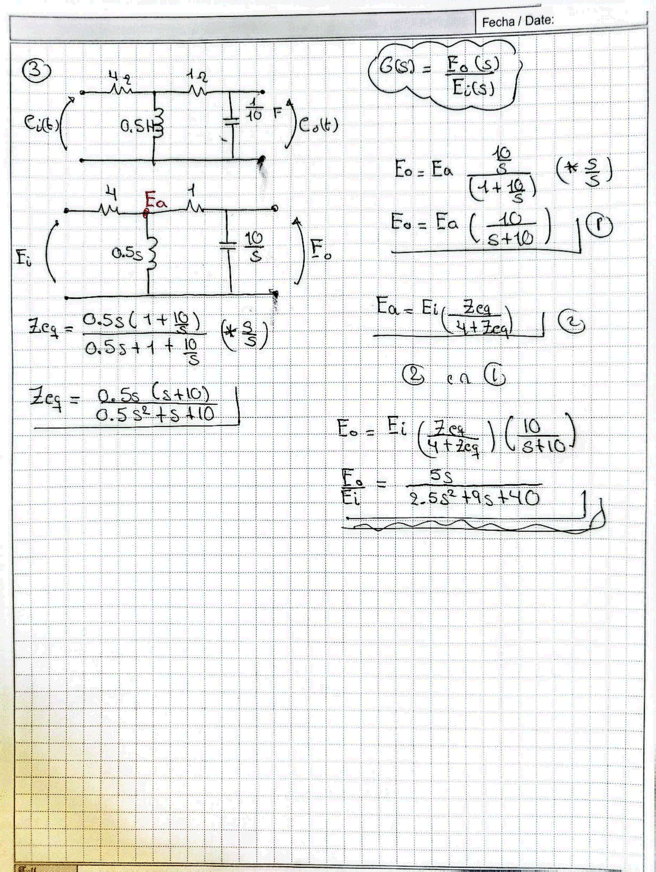 Fecha / Date:
③
4Ω 1Ω
ei(t) 0.5H 1/10 F eo(t)
G(s) = Eo(s)/Ei(s)
4 Ea 1
Ei 0.5s 10/s Eo
Zeq = 0.5s(1+10/s)/(0.5s+1+10/s) (* s/s)
Zeq = 0.5s(s+10)/(0.5s²+s+10)
Eo = Ea (10/s)/(1+10/s) (* s/s)
Eo = Ea (10/(s+10)) ①
Ea = Ei (Zeq/(4+Zeq)) ②
② en ①
Eo = Ei (Zeq/(4+Zeq)) (10/(s+10))
Eo/Ei = 5s/(2.5s²+9s+40)